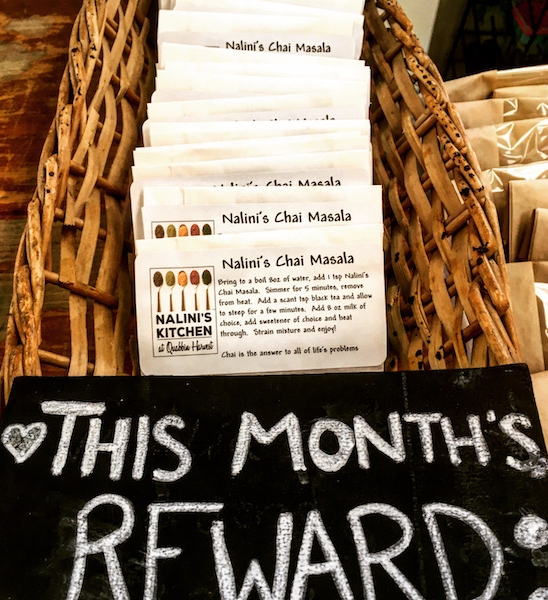 Nalini's Chai Masala
Nalini's Chai Masala
Nalini's Chai Masala
Nalini's Chai Masala
Bring to a boil 8oz of water, add 1 tsp Nalini's
Chai Masala. Simmer for 5 minutes, remove
from heat. Add a scant tsp black tea and allow
to steep for a few minutes. Add 8 oz milk of
choice, add sweetener of choice and heat
through. Strain mixture and enjoy!
Chai is the answer to all of life's problems
NALINI'S
KITCHEN
at Quabbin Harvest
THIS MONTH'S
REWARD: